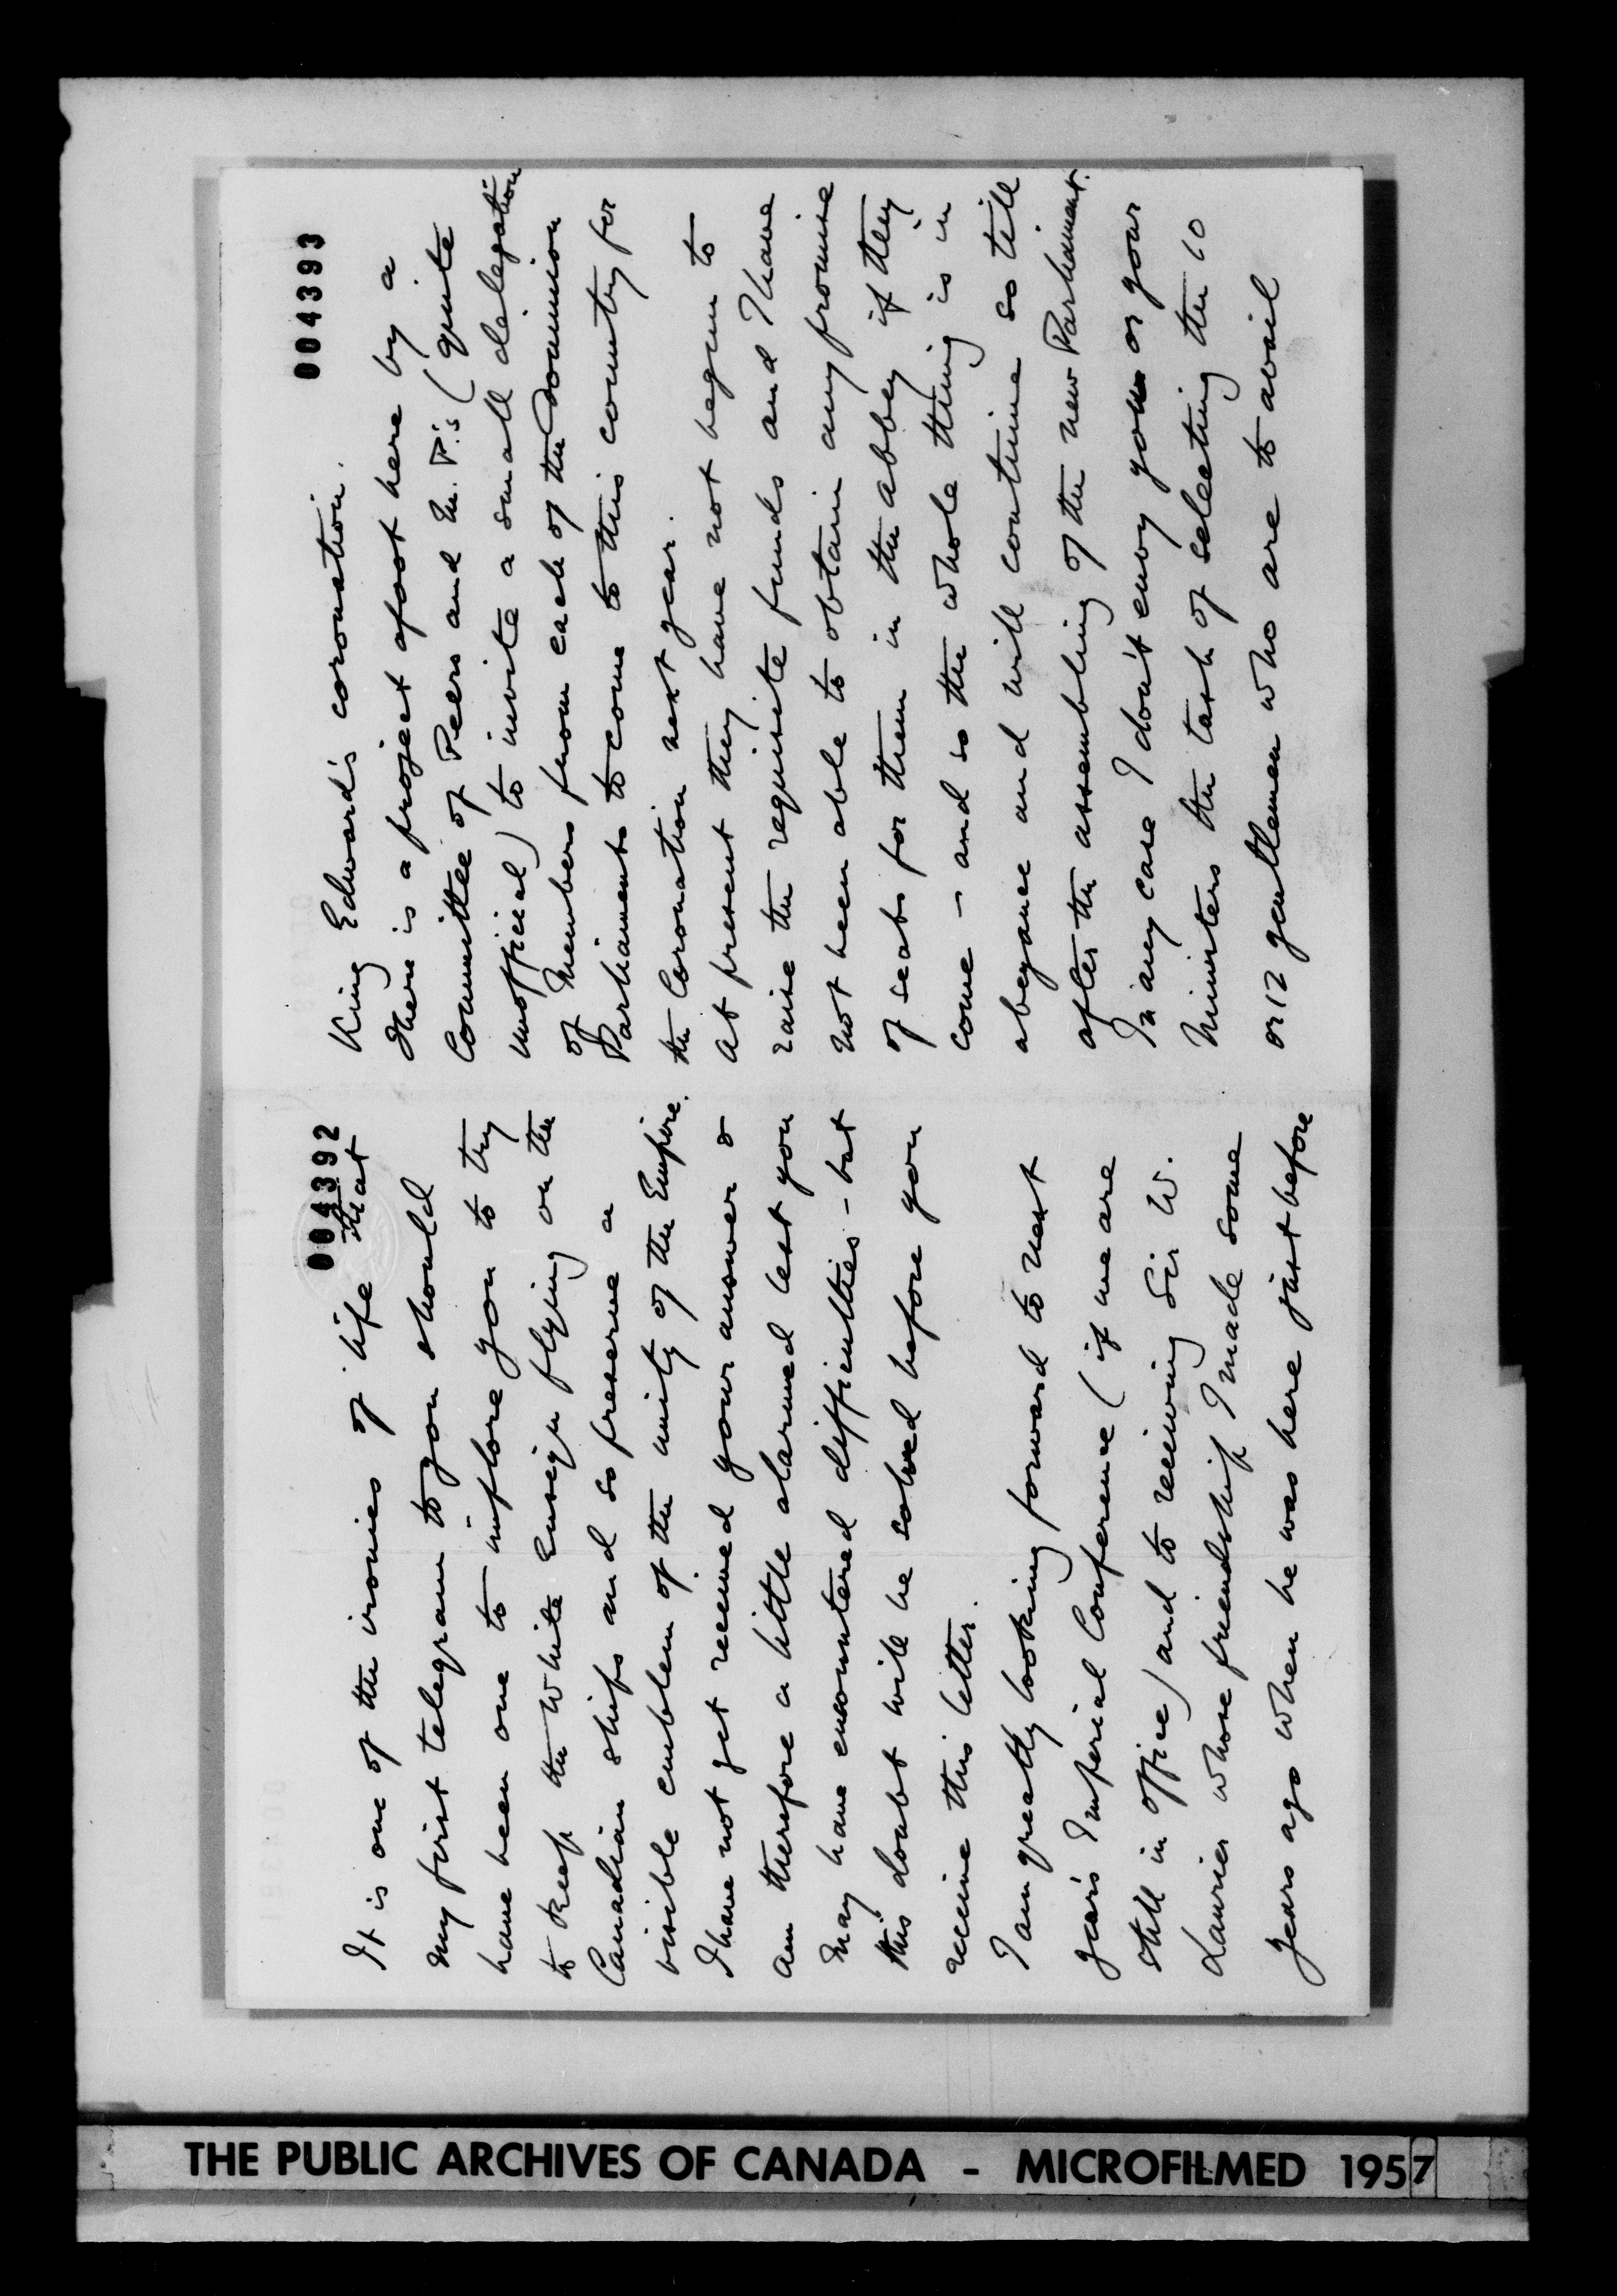 004392
It is one of the ironies of life that
my first telegram to you should
have been one to implore you to try
to keep the White Ensign flying on the
Canadian ships and so preserve a
visible emblem of the unity of the Empire.
I have not yet received your answer &
am therefore a little alarmed lest you
may have encountered difficulties - but
this doubt will be solved before you
receive this letter.
I am greatly looking forward to next
year's Imperial Conference (if we are
still in office) and to receiving Sir W.
Laurier whose friendship I made some
years ago when he was here just before
004393
King Edward's coronation.
There is a project afoot here by a
Committee of Peers and M.P.'s (quite
unofficial) to invite a small delegation
of Members from each of the Dominion
Parliaments to come to this country for
the Coronation next year.
At present they have not begun to
raise the requisite funds and I have
not been able to obtain any promise
of seats for them in the abbey if they
come - and so the whole thing is in
abeyance and will continue so till
after the assembling of the new Parliament.
In any case I don't envy you or your
Ministers the task of selecting the 10
or 12 gentlemen who are to avail
THE PUBLIC ARCHIVES OF CANADA - MICROFILMED 1957